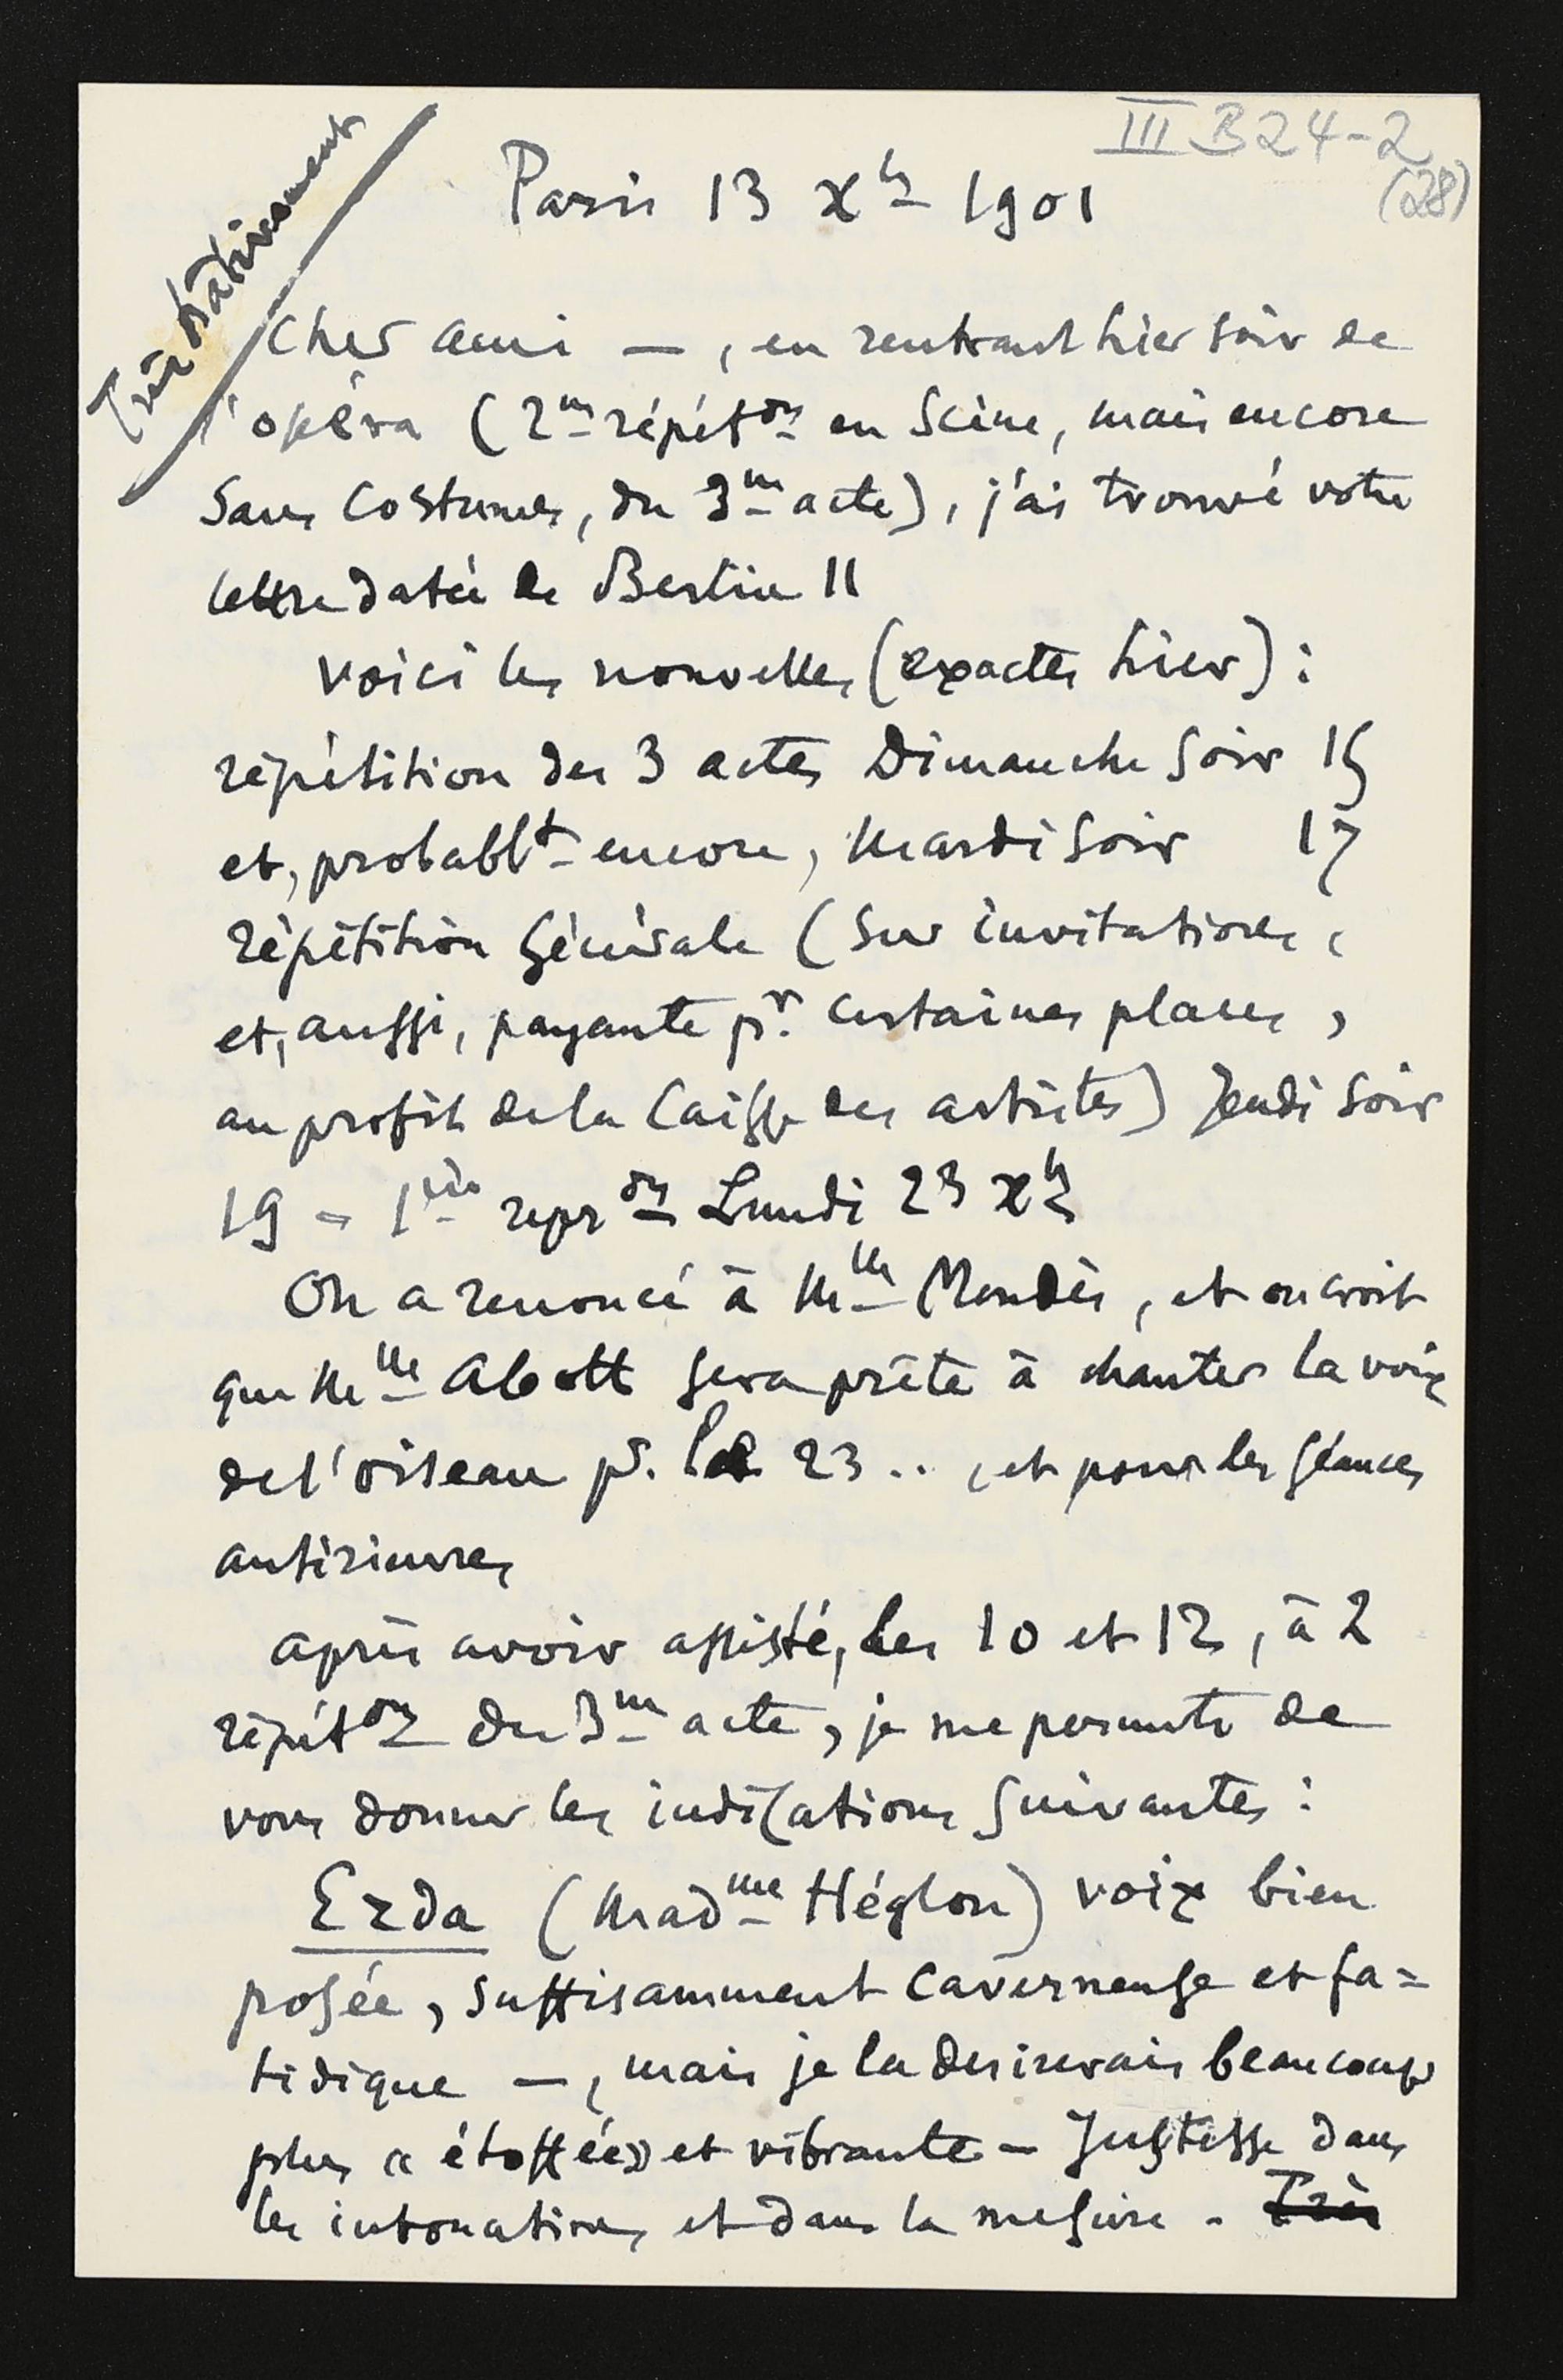 III B 24-2
(28)
Très hâtivement
Paris 13 Xbre 1901
Cher ami —, en rentrant hier soir de
l'opéra (2me répéton en Scène, mais encore
Sans Costumes, du 3me acte), j'ai trouvé votre
lettre datée de Berlin 11
Voici les nouvelles (exactes hier) :
répétition des 3 actes Dimanche Soir 15
et, probablt encore, Mardi Soir 17
répétition Générale (Sur invitations,
et, aussi, payante pr. Certaines places,
au profit de la Caisse des artistes) Jeudi Soir
19 = 1ère repron Lundi 23 Xbre
On a renoncé à Mlle Mendès, et on croit
que Mlle Abott Sera prête à chanter la voix
de l'oiseau pr. le 23 .. , et pour les Séances
antérieures
après avoir assisté, les 10 et 12, à 2
répéton du 3me acte, je me permets de
vous donner les indications Suivantes :
Erda (Madme Héglon) voix bien
posée, suffisamment Caverneuse et fa=
tidique —, mais je la desirerais beaucoup
plus « étoffée » et vibrante — Justesse dans
les intonations, et dans la mesure - Très